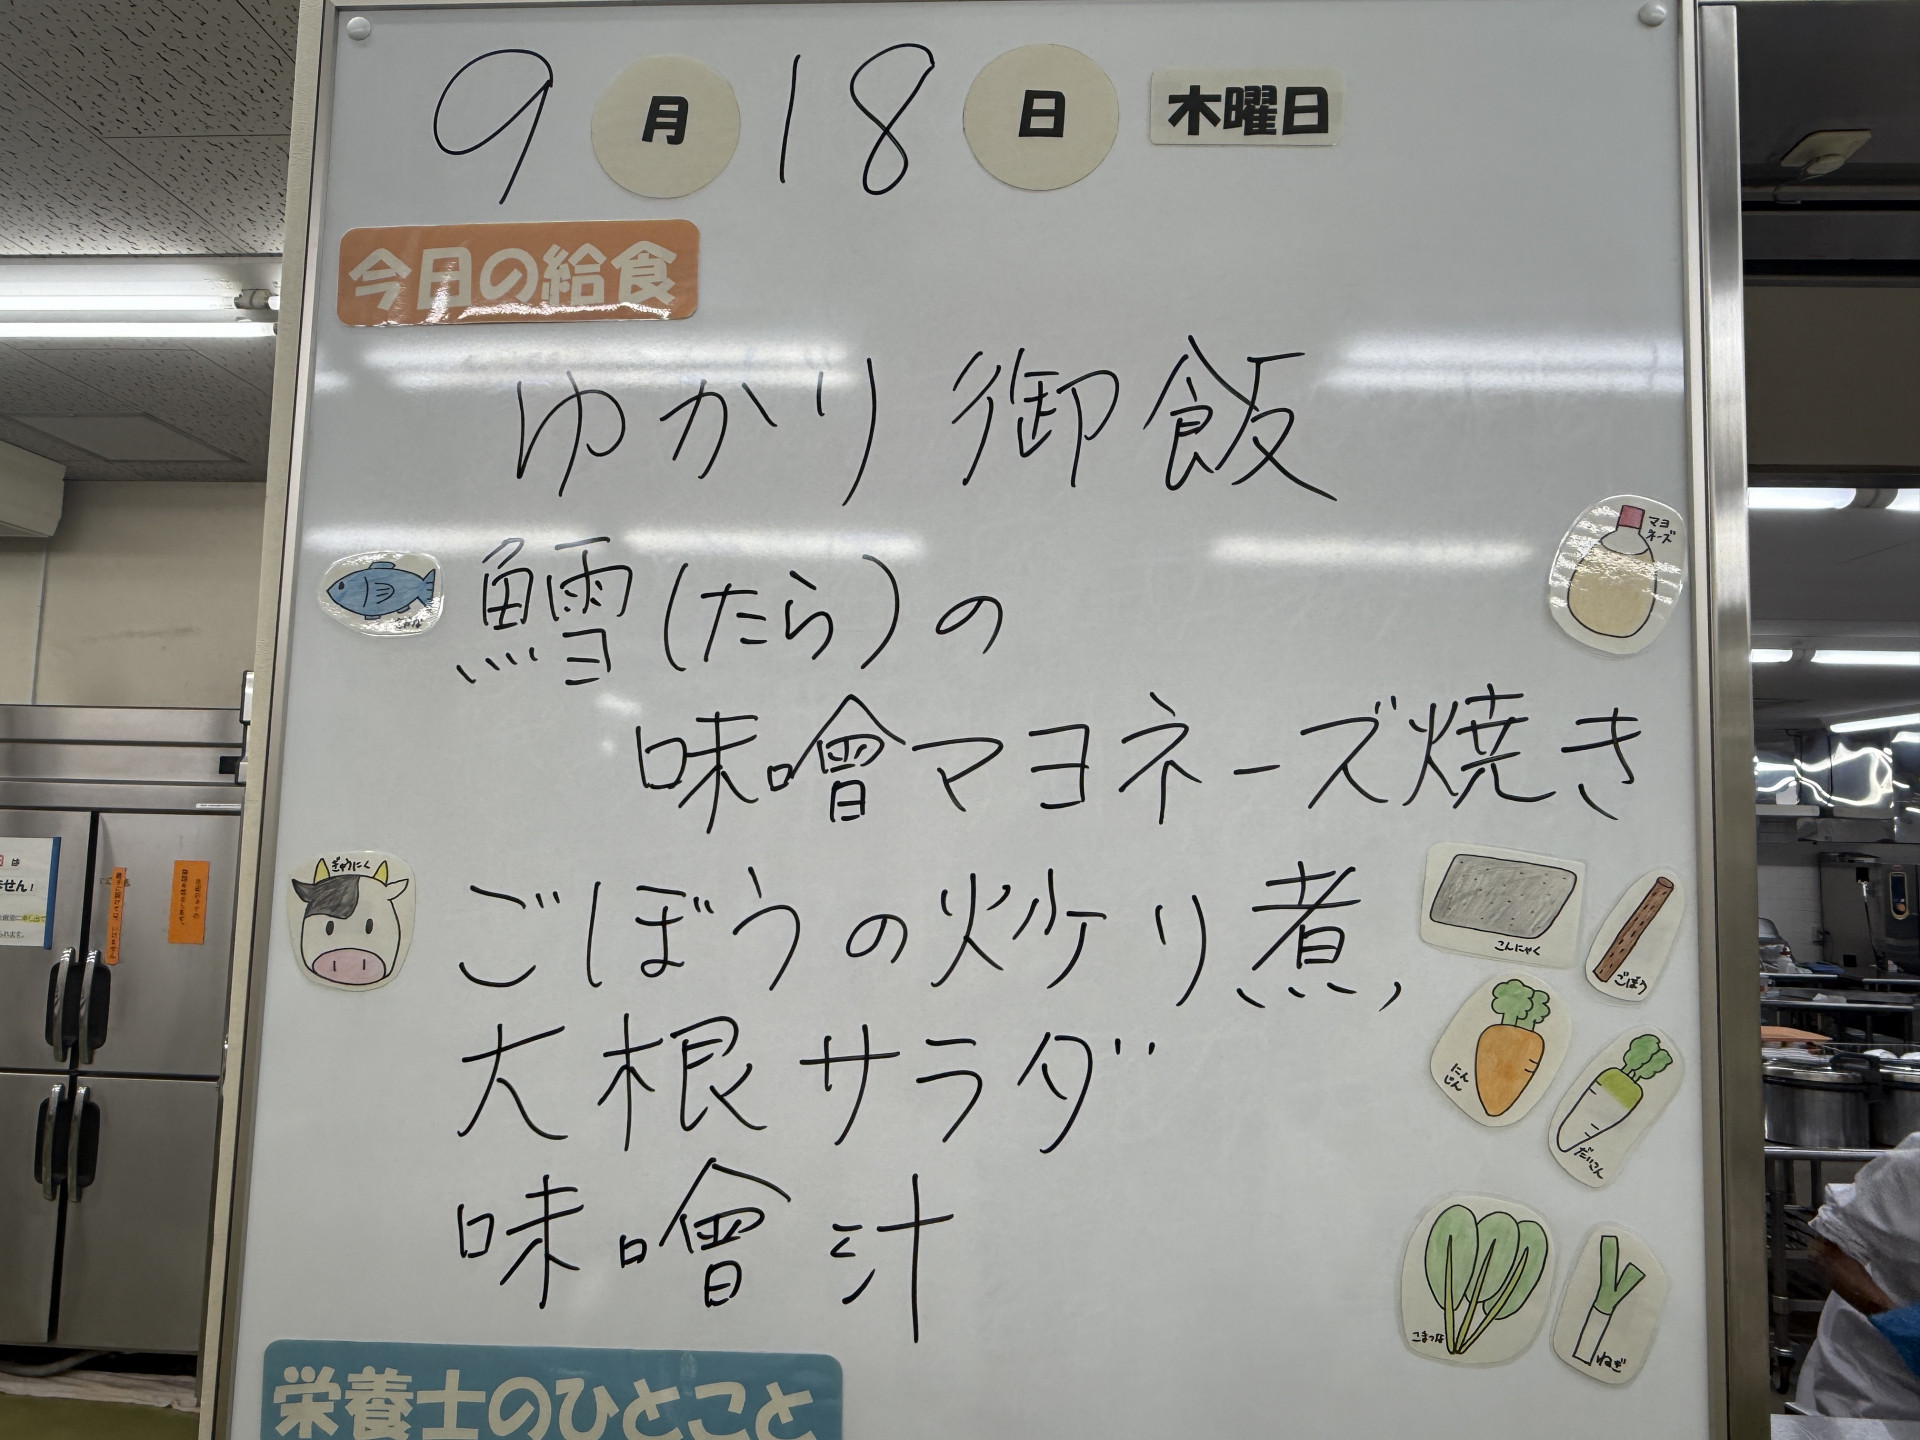 9月18日 木曜日
今日の給食
ゆかり御飯
鱈(たら)の
味噌マヨネーズ焼き
ごぼうの炒り煮,
大根サラダ
味噌汁
栄養士のひとこと
マヨ
ネーズ
さかな
ぎゅうにく
こんにゃく
ごぼう
にん
じん
だいこん
こまつな
ねぎ
せん!